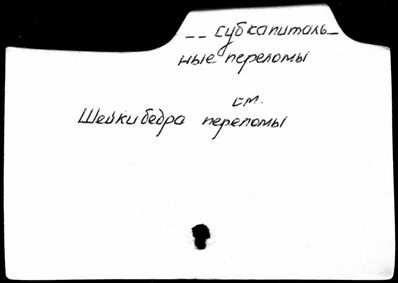 -- субкапиталь-
ные переломы
см.
Шейки бедра переломы